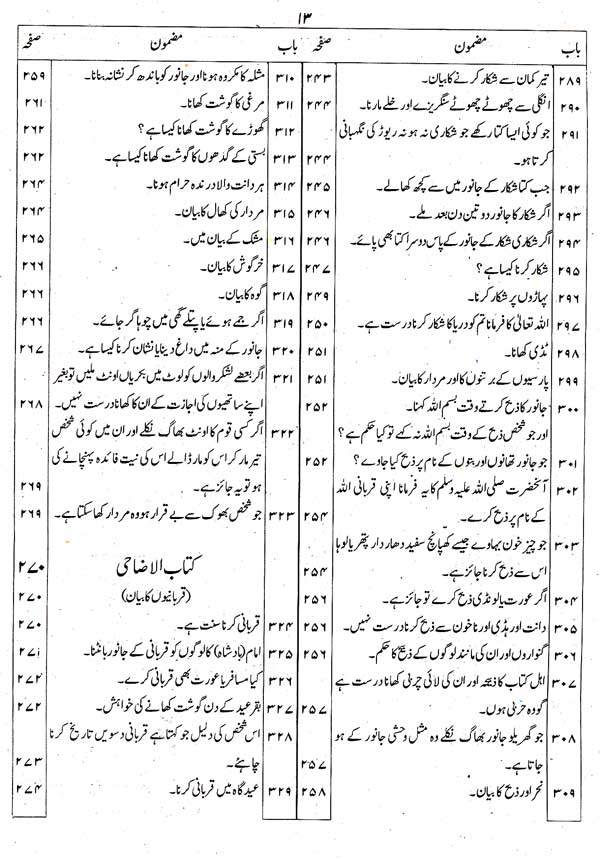 ۱۳
باب مضمون صفحہ
۲۸۹ تیر کمان سے شکار کرنے کا بیان۔ ۲۴۳
۲۹۰ انگلی سے چھوٹے چھوٹے سنگریزے اور غلے مارنا۔ ۲۴۴
۲۹۱ جو کوئی ایسا کتا رکھے جو شکاری نہ ہو نہ ریوڑ کی نگہبانی
کرتا ہو۔ ۲۴۴
۲۹۲ جب کتا شکار کے جانور میں سے کچھ کھالے۔ ۲۴۵
۲۹۳ اگر شکار کا جانور دو تین دن بعد ملے۔ ۲۴۶
۲۹۴ اگر شکاری شکار کے جانور کے پاس دوسرا کتا بھی پائے۔ ۲۴۶
۲۹۵ شکار کرنا کیسا ہے؟ ۲۴۷
۲۹۶ پہاڑوں پر شکار کرنا۔ ۲۴۹
۲۹۷ اللہ تعالیٰ کا فرمانا تم کو دریا کا شکار کرنا درست ہے۔ ۲۵۰
۲۹۸ ٹڈی کھانا۔ ۲۵۱
۲۹۹ پارسیوں کے برتنوں کا اور مردار کا بیان۔ ۲۵۱
۳۰۰ جانور کا ذبح کرتے وقت بسم اللہ کہنا۔ ۲۵۲
اور جو شخص ذبح کے وقت بسم اللہ نہ کہے تو کیا حکم ہے؟
۳۰۱ جو جانور تھانوں اور بتوں کے نام پر ذبح کیا جاوے؟ ۲۵۲
۳۰۲ آنحضرت صلی اللہ علیہ وسلم کا یہ فرمانا اپنی قربانی اللہ
کے نام پر ذبح کرے۔ ۲۵۴
۳۰۳ جو چیز خون بہاوے جیسے کھپانچ سفید دھاردار پتھر یا لوہا
اس سے ذبح کرنا جائز ہے۔ ۲۵۴
۳۰۴ اگر عورت یا لونڈی ذبح کرے تو جائز ہے۔ ۲۵۶
۳۰۵ دانت اور ہڈی اور ناخون سے ذبح کرنا درست نہیں۔ ۲۵۶
۳۰۶ گنواروں اور ان کی مانند لوگوں کے ذبیح کا حکم۔ ۲۵۶
۳۰۷ اہل کتاب کا ذبیحہ اور ان کی لائی چربی کھانا درست ہے
گو وہ حربی ہوں۔ ۲۵۷
۳۰۸ جو گھریلو جانور بھاگ نکلے وہ مثل وحشی جانور کے ہو
جاتا ہے۔ ۲۵۷
۳۰۹ نحر اور ذبح کا بیان۔ ۲۵۸
باب مضمون صفحہ
۳۱۰ مثلہ کا مکروہ ہونا اور جانور کو باندھ کر نشانہ بنانا۔ ۲۵۹
۳۱۱ مرغی کا گوشت کھانا۔ ۲۶۱
۳۱۲ گھوڑے کا گوشت کھانا کیسا ہے؟ ۲۶۲
۳۱۳ بستی کے گدھوں کا گوشت کھانا کیسا ہے۔ ۲۶۲
۳۱۴ ہر دانت والا درندہ حرام ہونا۔ ۲۶۴
۳۱۵ مردار کی کھال کا بیان۔ ۲۶۴
۳۱۶ مشک کے بیان میں۔ ۲۶۵
۳۱۷ خرگوش کا بیان۔ ۲۶۶
۳۱۸ گوہ کا بیان۔ ۲۶۶
۳۱۹ اگر جمے ہوئے یا پتلے گھی میں چوہا گر جائے۔ ۲۶۶
۳۲۰ جانور کے منہ میں داغ دینا یا نشان کرنا کیسا ہے۔ ۲۶۷
۳۲۱ اگر بعضے لشکر والوں کو لوٹ میں بکریاں اونٹ ملیں تو بغیر
اپنے ساتھیوں کی اجازت کے ان کا کھانا درست نہیں۔ ۲۶۸
۳۲۲ اگر کسی قوم کا اونٹ بھاگ نکلے اور ان میں کوئی شخص
تیر مار کر اس کو مار ڈالے اس کی نیت فائدہ پہنچانے کی
ہو تو یہ جائز ہے۔ ۲۶۹
۳۲۳ جو شخص بھوک سے بے قرار ہو وہ مردار کھا سکتا ہے۔ ۲۶۹
کتاب الاضاحی ۲۷۰
(قربانیوں کا بیان) ۲۷۰
۳۲۴ قربانی کرنا سنت ہے۔ ۲۷۰
۳۲۵ امام (بادشاہ) کا لوگوں کو قربانی کے جانور بانٹنا۔ ۲۷۱
۳۲۶ کیا مسافر یا عورت بھی قربانی کرے۔ ۲۷۲
۳۲۷ بقر عید کے دن گوشت کھانے کی خواہش۔ ۲۷۲
۳۲۸ اس شخص کی دلیل جو کہتا ہے قربانی دسویں تاریخ کرنا
چاہئے۔ ۲۷۳
۳۲۹ عید گاہ میں قربانی کرنا۔ ۲۷۴